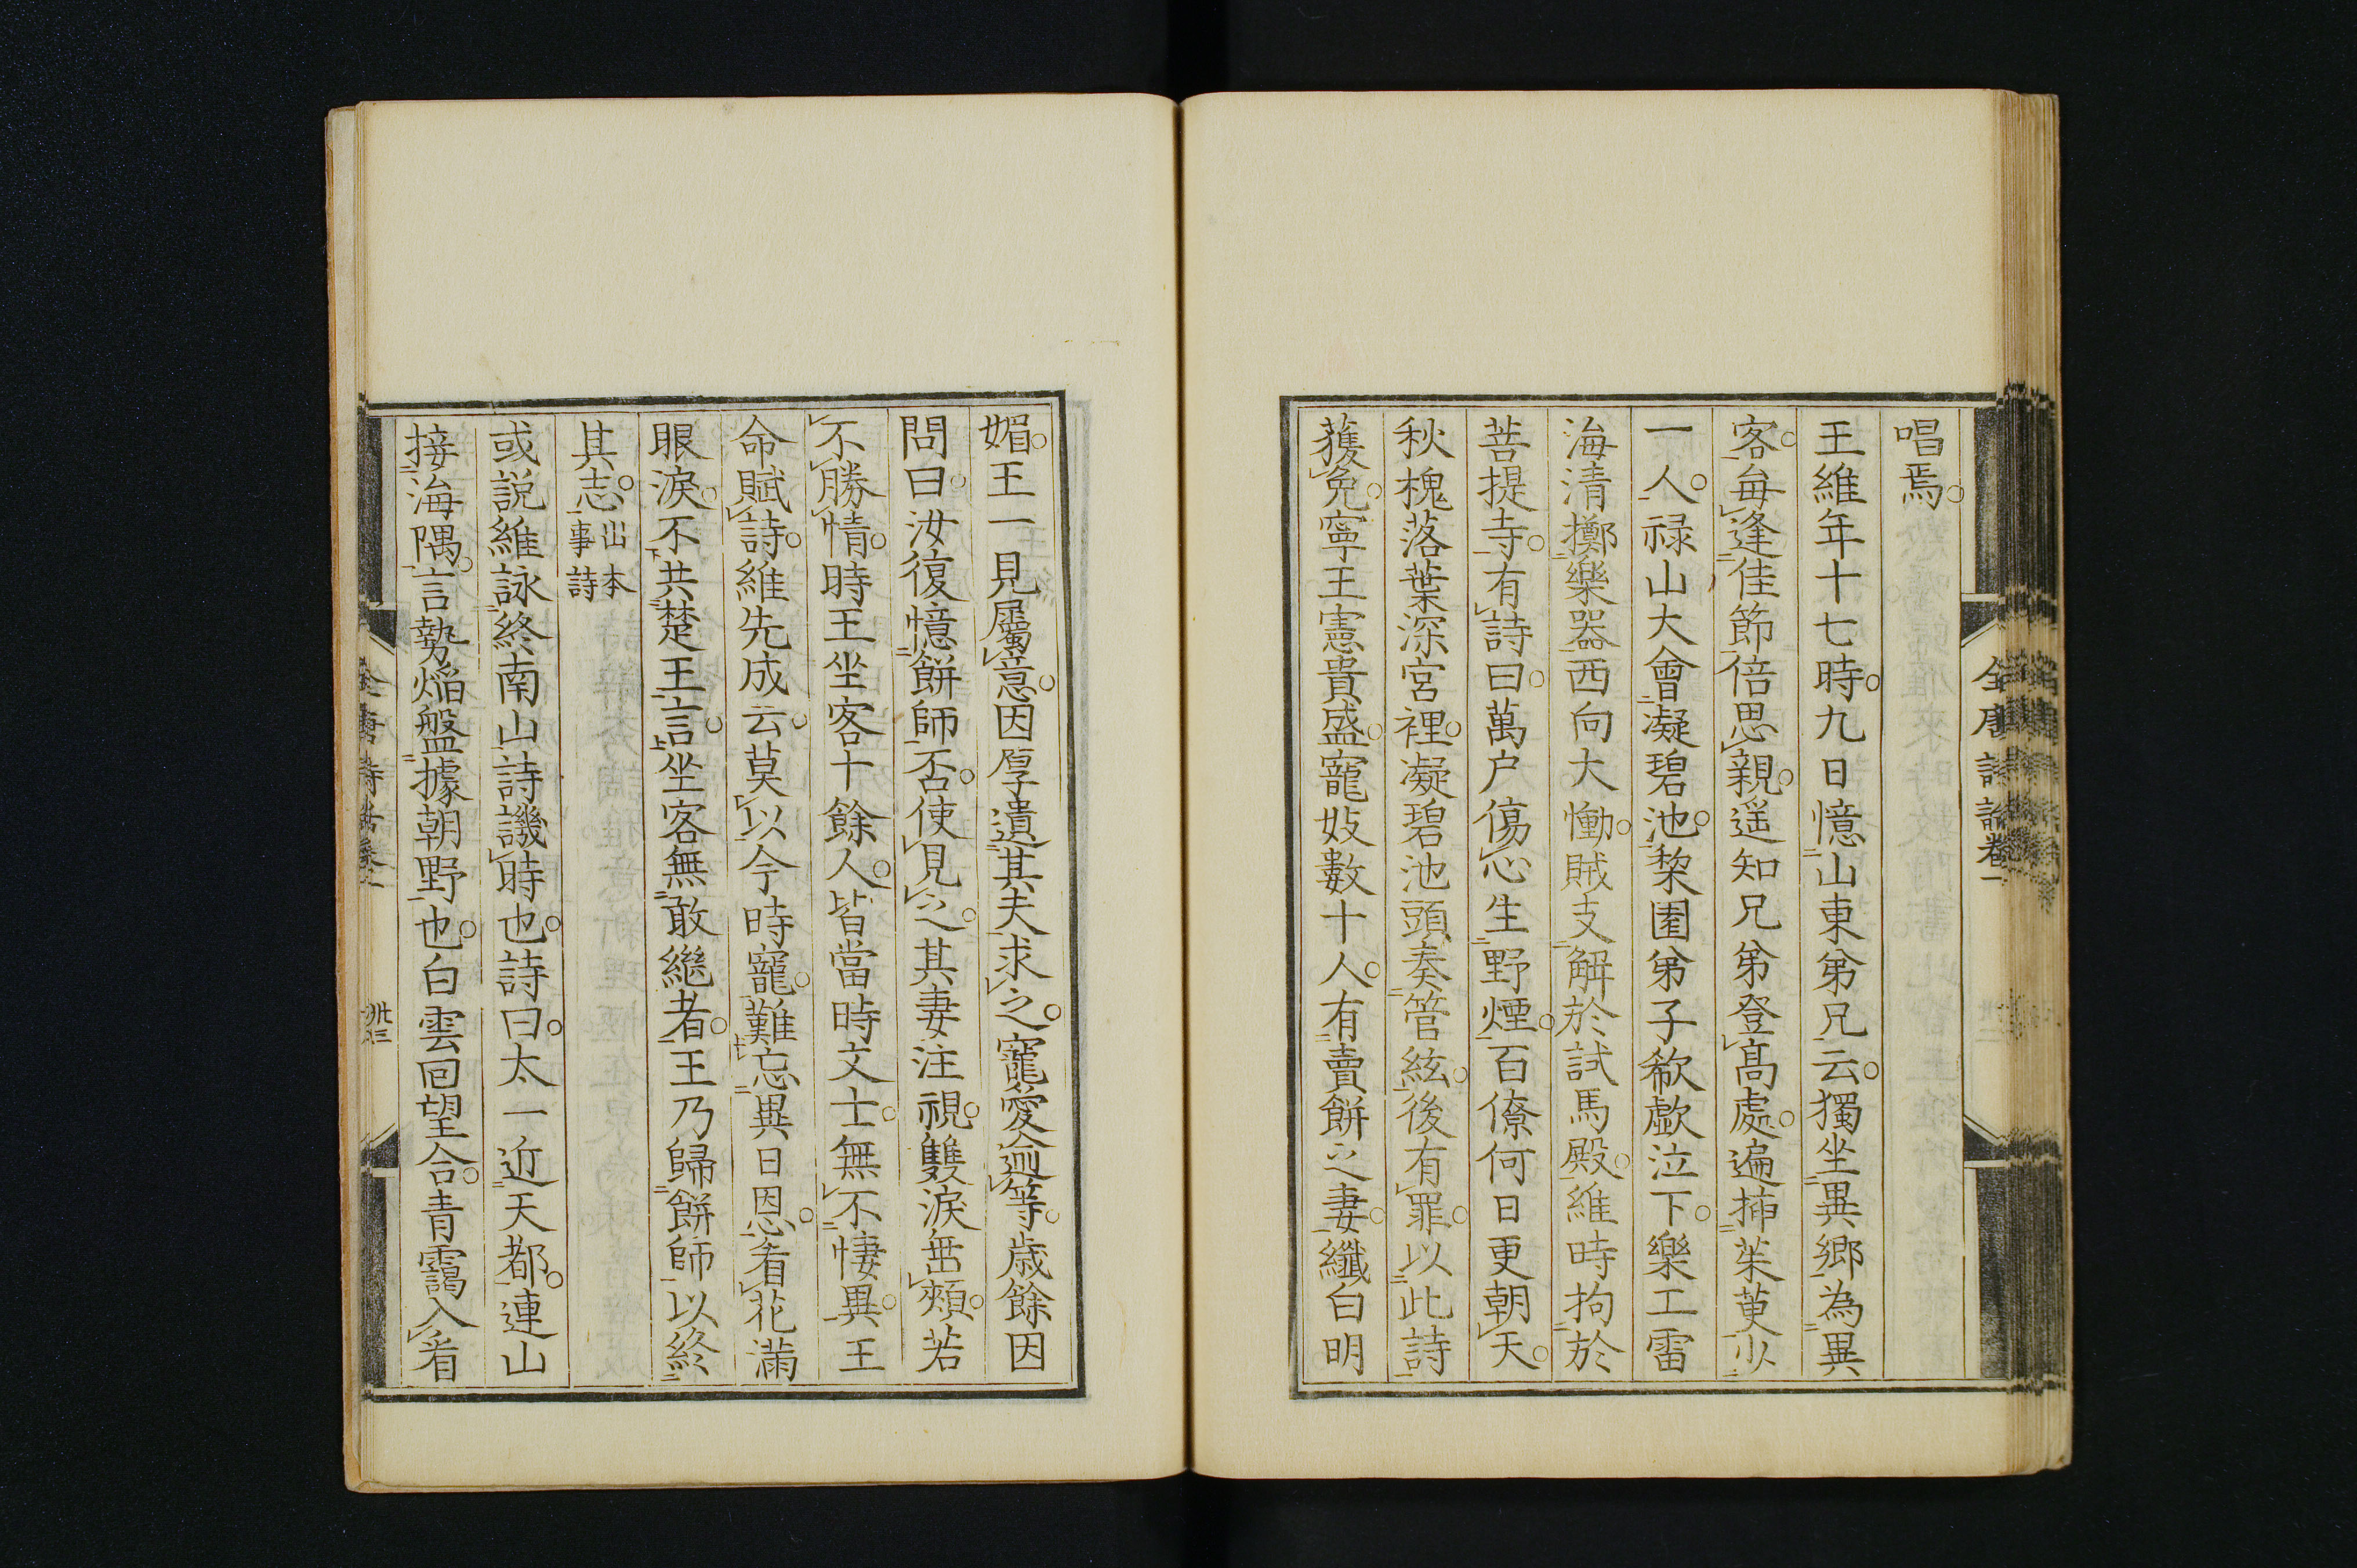 唱焉。
王維年十七時。九日憶山東弟兄云。獨坐異鄉為異
客。每逢佳節倍思親。遥知兄弟登高處。遍揷茱萸少
一人。禄山大會凝碧池。棃園弟子欷歔泣下。樂工雷
海清擲樂器西向大慟。賊支解於試馬殿。維時拘於
菩提寺。有詩曰。萬户傷心生野煙。百僚何日更朝天。
秋槐落葉深宮裡。凝碧池頭奏管絃。後有罪。以此詩
獲免。寧王憲貴盛。寵妓數十人。有賣餅之妻。纖白明
全唐詩話卷一
媚。王一見屬意。因厚遺其夫求之。寵愛逾等。歲餘因
問曰。汝復憶餅師否。使見之。其妻注視。雙淚垂頰。若
不勝情。時王坐客十餘人。皆當時文士。無不悽異。王
命賦詩。維先成云。莫以今時寵。難忘異日恩。看花滿
眼淚。不共楚王言。坐客無敢繼者。王乃歸餅師。以終
其志。出本事詩
或説維詠終南山詩譏時也。詩曰。太一近天都。連山
接海隅。言勢焰盤據朝野也。白雲回望合。青靄入看
全唐詩話卷一
卅三